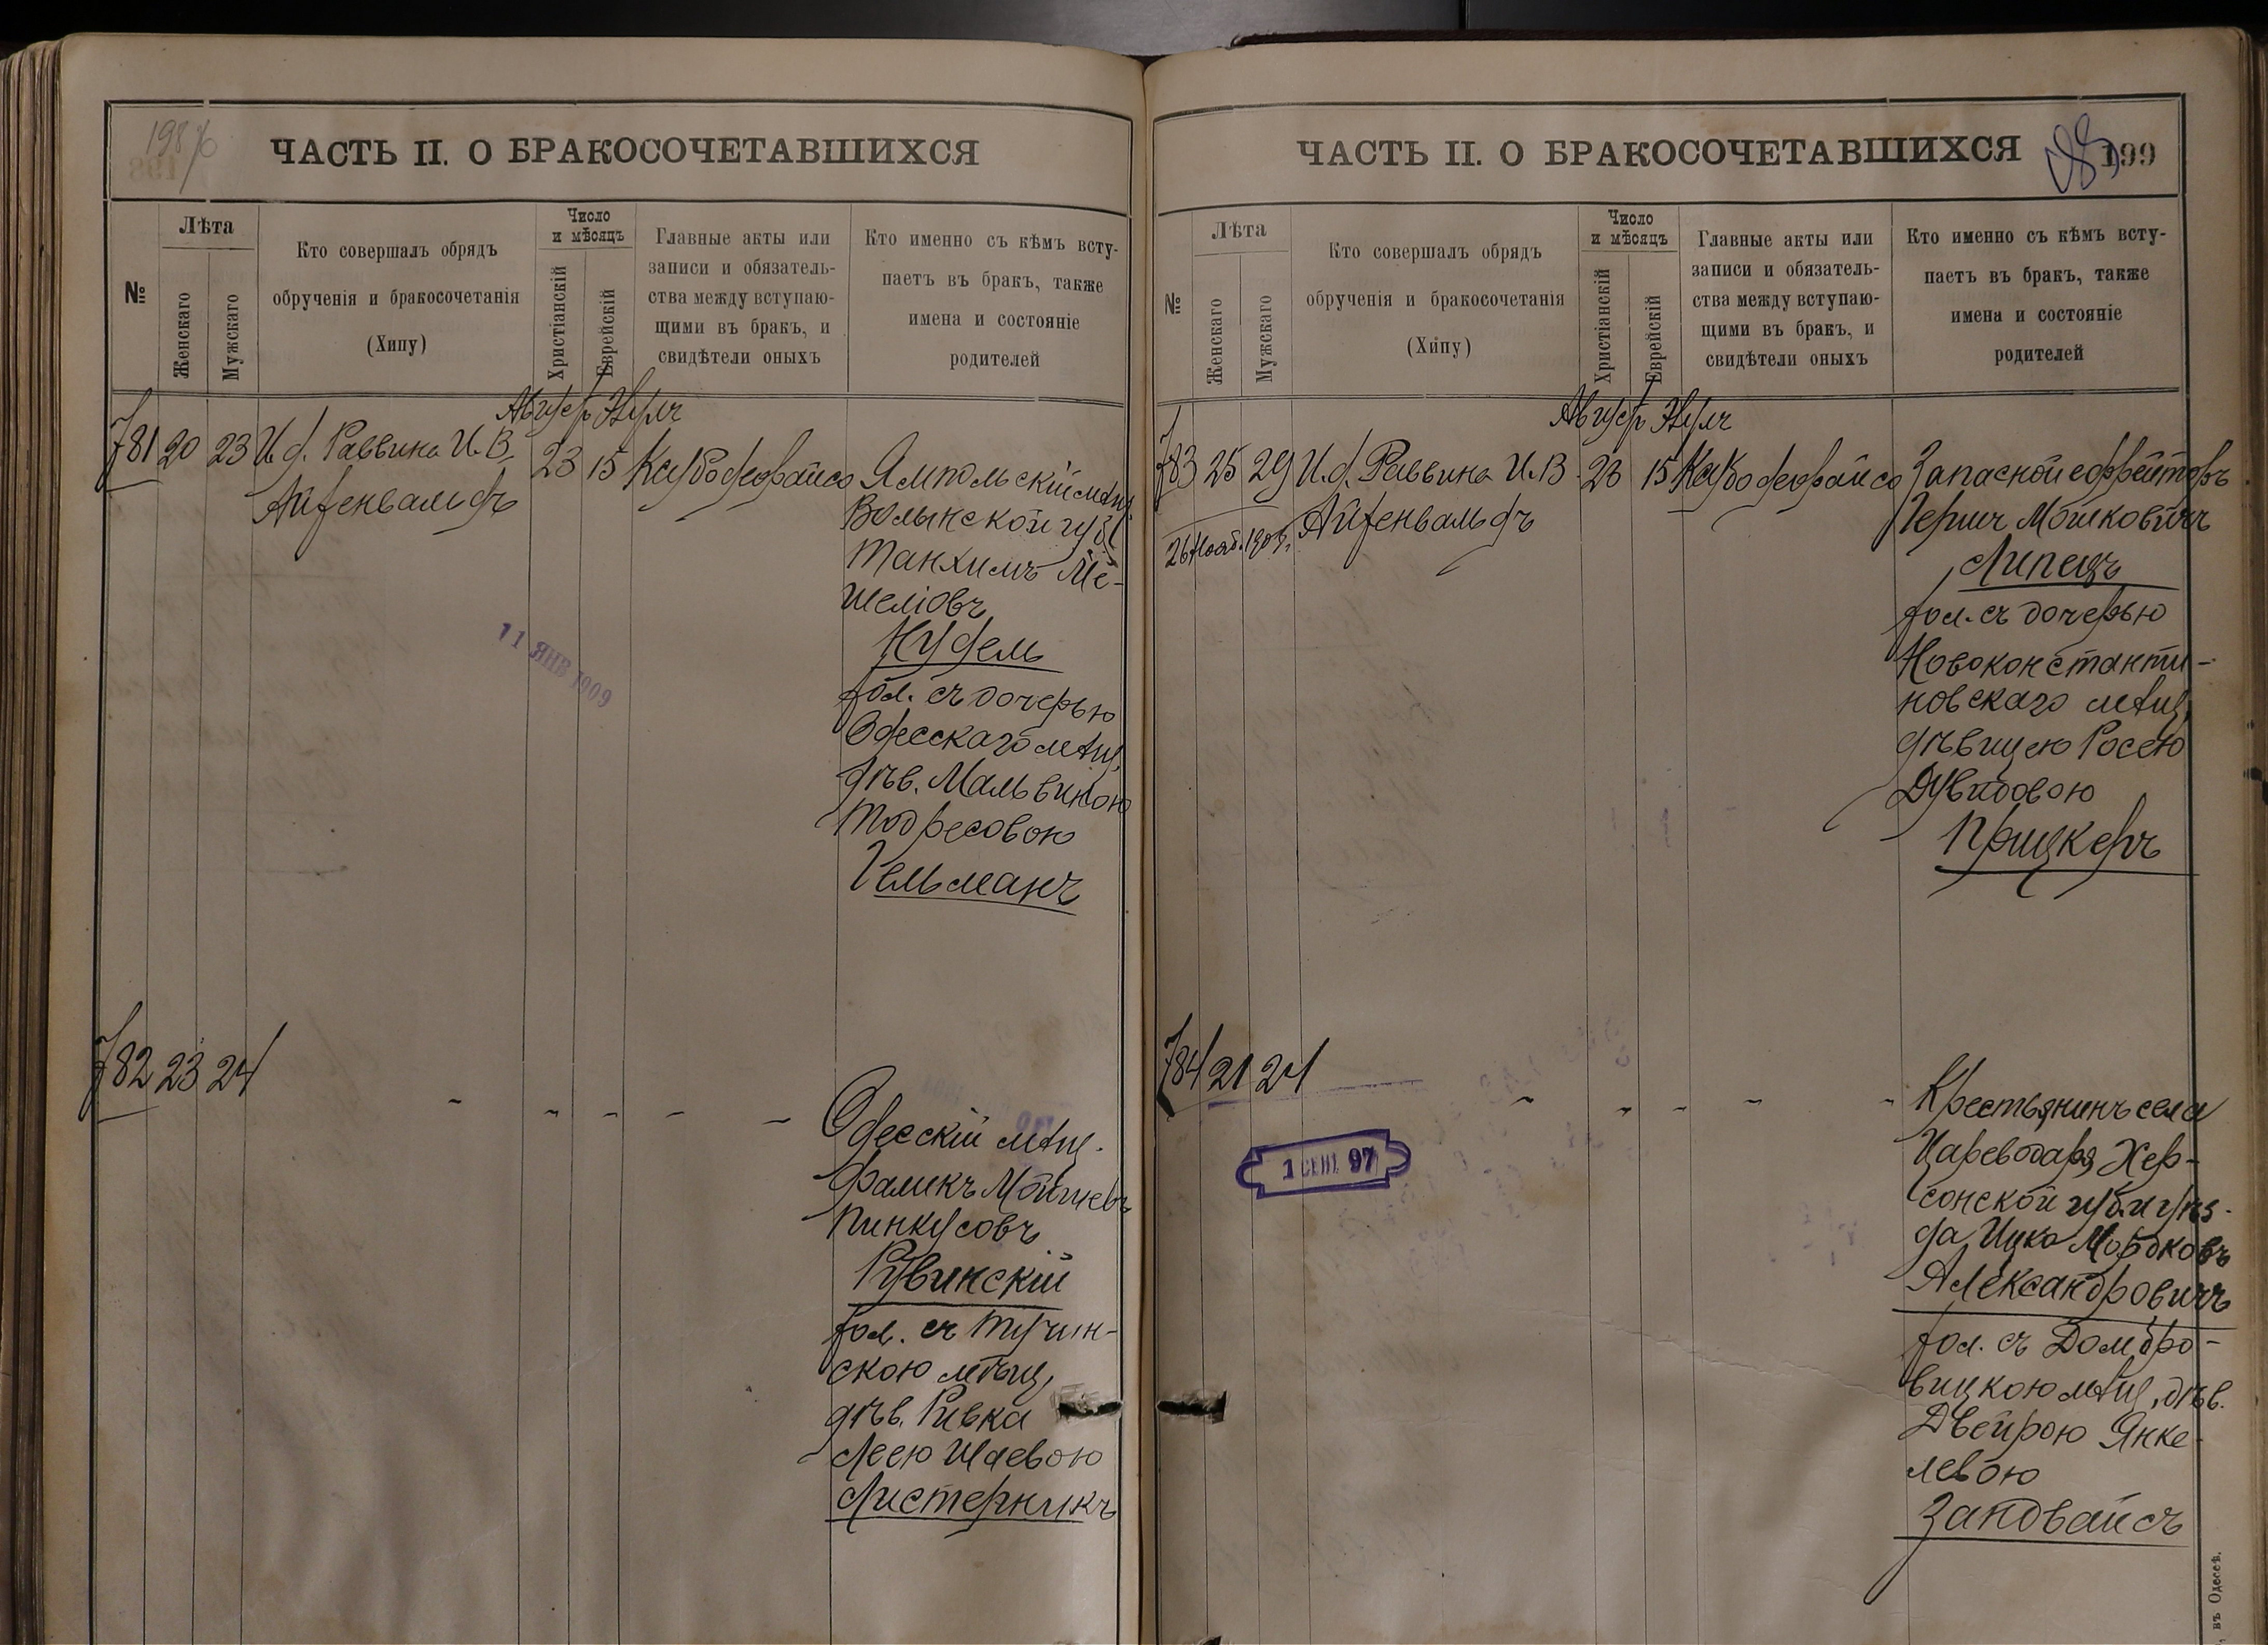 198
ЧАСТЬ II. О БРАКОСОЧЕТАВШИХСЯ
№
Лѣта
Женскаго
Мужскаго
Кто совершалъ обрядъ
обрученія и бракосочетанія
(Хипу)
Число
и мѣсяцъ
Христіанскій
Еврейскій
Главные акты или
записи и обязатель-
ства между вступаю-
щими въ бракъ, и
свидѣтели оныхъ
Кто именно съ кѣмъ всту-
паетъ въ бракъ, также
имена и состояніе
родителей
781 20 23 И. д. Раввина И. В.
Айзенвальдъ
Август Элулъ
23 15
Ямпольскій мѣщ.
Волынской губ.
Танхимъ Ме-
шеліовъ
Нудель
хол. съ дочерью
Одесскаго мѣщ.
дѣв. Мальвиною
Тодресовою
Гельманъ
11 ЯНВ 1909
782 23 24 - - - - -
Одесскій мѣщ.
Фаликъ Мойшевъ
Пинкусовъ
Рувинскій
хол. съ Тучин-
скою мѣщ,
дѣв. Ривка
Леею Шаевою
Листерникъ
ЧАСТЬ II. О БРАКОСОЧЕТАВШИХСЯ
199
№
Лѣта
Женскаго
Мужскаго
Кто совершалъ обрядъ
обрученія и бракосочетанія
(Хипу)
Число
и мѣсяцъ
Христіанскій
Еврейскій
Главные акты или
записи и обязатель-
ства между вступаю-
щими въ бракъ, и
свидѣтели оныхъ
Кто именно съ кѣмъ всту-
паетъ въ бракъ, также
имена и состояніе
родителей
783 25 29 И. д. Раввина И. В.
Айзенвальдъ
26 Нояб.
Август Элулъ
23 15
Запасной ефрейторъ
Гершъ Мошковичъ
Липецъ
хол. съ дочерью
Новоконстанти-
новскаго мѣщ,
дѣвицею Росею
Дувидовою
Прицкеръ
784 21 24 - - - - -
1 СЕНТ. 97
Крестьянинъ села
Цареводаръ Хер-
сонской губ. и уѣз-
да Ицко Мордковъ
Александровичъ
хол. съ Домбро-
вицкою мѣщ, дѣв.
Двейрою Янке-
левою
Зандвайсъ
въ Одессѣ.